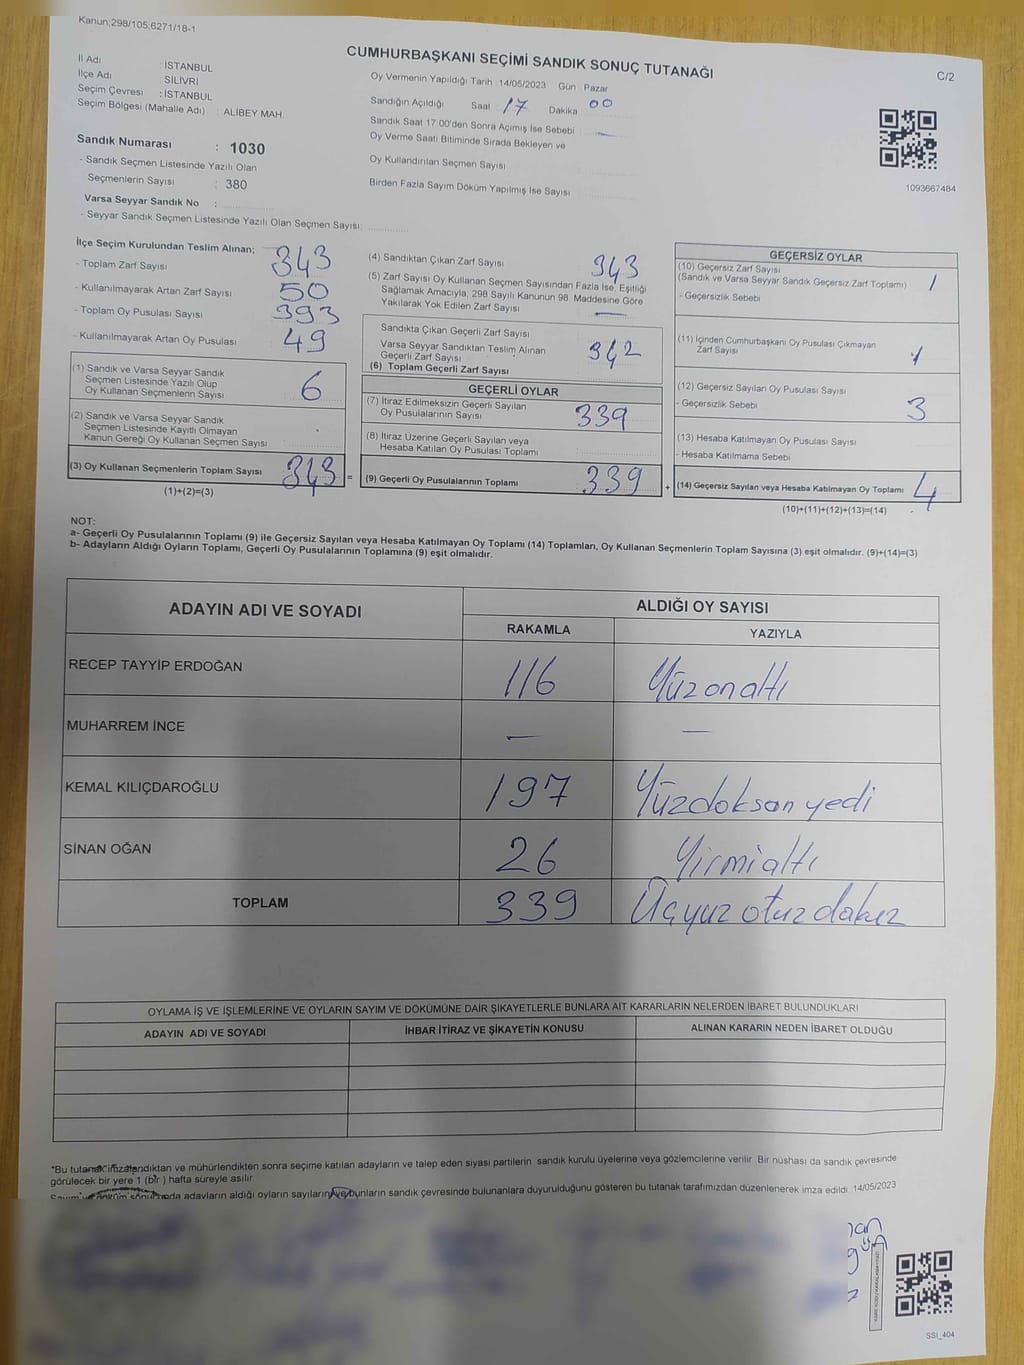 Kanun;298/105;6271/18-1
CUMHURBAŞKANI SEÇİMİ SANDIK SONUÇ TUTANAĞI
C/2
İl Adı : İSTANBUL
İlçe Adı : SİLİVRİ
Seçim Çevresi : İSTANBUL
Seçim Bölgesi (Mahalle Adı) : ALİBEY MAH.
Oy Vermenin Yapıldığı Tarih 14/05/2023 Gün Pazar
Sandığın Açıldığı Saat 17 Dakika 00
Sandık Saat 17:00'den Sonra Açımış İse Sebebi —
Oy Verme Saati Bitiminde Sırada Bekleyen ve
Oy Kullandırılan Seçmen Sayısı
Birden Fazla Sayım Döküm Yapılmış İse Sayısı
1093667484
Sandık Numarası : 1030
- Sandık Seçmen Listesinde Yazılı Olan
Seçmenlerin Sayısı : 380
Varsa Seyyar Sandık No :
- Seyyar Sandık Seçmen Listesinde Yazılı Olan Seçmen Sayısı:
İlçe Seçim Kurulundan Teslim Alınan;
- Toplam Zarf Sayısı 343
- Kullanılmayarak Artan Zarf Sayısı 50
- Toplam Oy Pusulası Sayısı 393
- Kullanılmayarak Artan Oy Pusulası 49
(1) Sandık ve Varsa Seyyar Sandık
Seçmen Listesinde Yazılı Olup
Oy Kullanan Seçmenlerin Sayısı 6
(2) Sandık ve Varsa Seyyar Sandık
Seçmen Listesinde Kayıtlı Olmayan
Kanun Gereği Oy Kullanan Seçmen Sayısı
(3) Oy Kullanan Seçmenlerin Toplam Sayısı 343 =
(1)+(2)=(3)
(4) Sandıktan Çıkan Zarf Sayısı 343
(5) Zarf Sayısı Oy Kullanan Seçmen Sayısından Fazla İse, Eşitliği
Sağlamak Amacıyla, 298 Sayılı Kanunun 98. Maddesine Göre
Yakılarak Yok Edilen Zarf Sayısı —
Sandıkta Çıkan Geçerli Zarf Sayısı
Varsa Seyyar Sandıktan Teslim Alınan
Geçerli Zarf Sayısı
(6) Toplam Geçerli Zarf Sayısı 342
GEÇERLİ OYLAR
(7) İtiraz Edilmeksizin Geçerli Sayılan
Oy Pusulalarının Sayısı 339
(8) İtiraz Üzerine Geçerli Sayılan veya
Hesaba Katılan Oy Pusulası Toplamı
(9) Geçerli Oy Pusulalarının Toplamı 339 +
GEÇERSİZ OYLAR
(10) Geçersiz Zarf Sayısı
(Sandık ve Varsa Seyyar Sandık Geçersiz Zarf Toplamı) 1
- Geçersizlik Sebebi
(11) İçinden Cumhurbaşkanı Oy Pusulası Çıkmayan
Zarf Sayısı 1
(12) Geçersiz Sayılan Oy Pusulası Sayısı
- Geçersizlik Sebebi 3
(13) Hesaba Katılmayan Oy Pusulası Sayısı
- Hesaba Katılmama Sebebi
(14) Geçersiz Sayılan veya Hesaba Katılmayan Oy Toplamı 4
(10)+(11)+(12)+(13)=(14)
NOT:
a- Geçerli Oy Pusulasının Toplamı (9) ile Geçersiz Sayılan veya Hesaba Katılmayan Oy Toplamı (14) Toplamları, Oy Kullanan Seçmenlerin Toplam Sayısına (3) eşit olmalıdır. (9)+(14)=(3)
b- Adayların Aldığı Oyların Toplamı, Geçerli Oy Pusulalarının Toplamına (9) eşit olmalıdır.
ADAYIN ADI VE SOYADI
ALDIĞI OY SAYISI
RAKAMLA YAZIYLA
RECEP TAYYİP ERDOĞAN 116 Yüzonaltı
MUHARREM İNCE — —
KEMAL KILIÇDAROĞLU 197 Yüzdoksanyedi
SİNAN OĞAN 26 Yirmialtı
TOPLAM 339 Üçyuz otuz dokuz
OYLAMA İŞ VE İŞLEMLERİNE VE OYLARIN SAYIM VE DÖKÜMÜNE DAİR ŞİKAYETLERLE BUNLARA AİT KARARLARIN NELERDEN İBARET BULUNDUKLARI
ADAYIN ADI VE SOYADI İHBAR İTİRAZ VE ŞİKAYETİN KONUSU ALINAN KARARIN NEDEN İBARET OLDUĞU
*Bu tutanak imzalandıktan ve mühürlendikten sonra seçime katılan adayların ve talep eden siyasi partilerin sandık kurulu üyelerine veya gözlemcilerine verilir. Bir nüshası da sandık çevresinde
görülecek bir yere 1 (bir) hafta süreyle asılır.
Sayım ve döküm sonucunda adayların aldığı oyların sayılarını ve bunların sandık çevresinde bulunanlara duyurulduğunu gösteren bu tutanak tarafımızdan düzenlenerek imza edildi. 14/05/2023
SSI_404